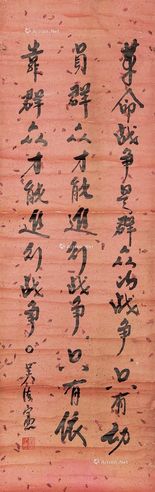 革命战争是群众的战争只有动
员群众才能进行战争只有依
靠群众才能进行战争。